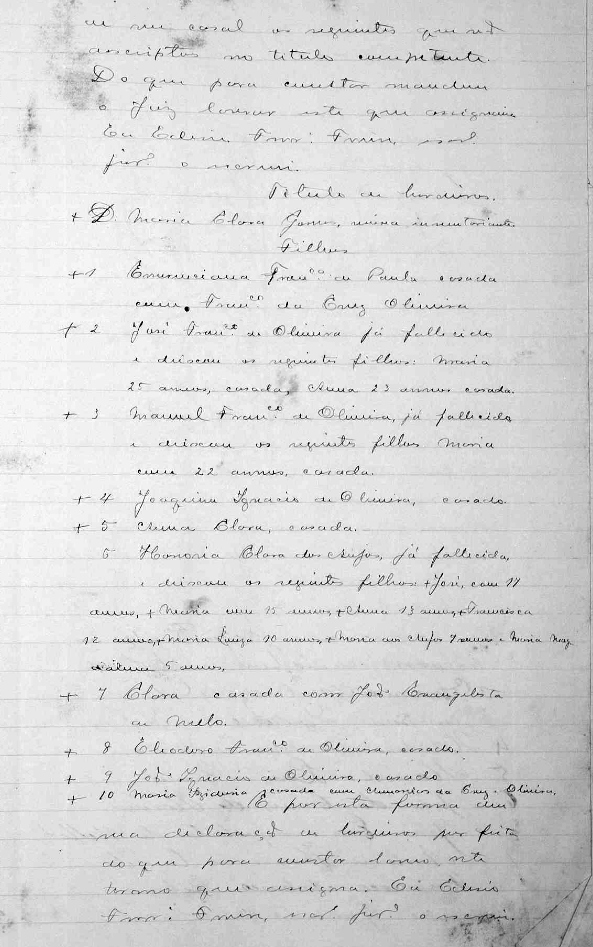 de seu casal os seguintes que vão
descriptos no titulo competente.
Do que para constar mandou
o Juiz lavrar este que assigna.
Eu
jur.º o escrevi.
Titulo de herdeiros.
+ D. Maria Clara Jesus, viuva inventariante
Filhos
+ 1 Emerenciana Fran.ca de Paula casada
com Fran.co da Cruz Oliveira
+ 2 José Fran.co de Oliveira já fallecido
e deixou os seguintes filhos: Maria
25 annos, casada, Anna 23 annos casada.
+ 3 Manuel Fran.co de Oliveira, já fallecido
e deixou os seguintes filhos Maria
com 22 annos, casada.
+ 4 Joaquim Ignacio de Oliveira, casado.
+ 5 Anna Clara, casada.
6 Honoria Clara dos Anjos, já fallecida,
e deixou os seguintes filhos: + José, com 17
annos, + Maria com 15 annos, + Anna 13 annos, + Francisca
12 annos, + Maria Luiza 10 annos, + Maria dos Anjos 7 annos e Maria
5 annos,
+ 7 Clara casada com João Evangelista
de Mello.
+ 8 Eliodoro Fran.co de Oliveira, casado.
+ 9 João Ignacio de Oliveira, casado
+ 10 Maria casada com da Cruz e Oliveira.
E por esta forma deu
ma declaração de herdeiros por feita
do que para constar lavro este
termo que assigna. Eu
jur.º o escrevi.